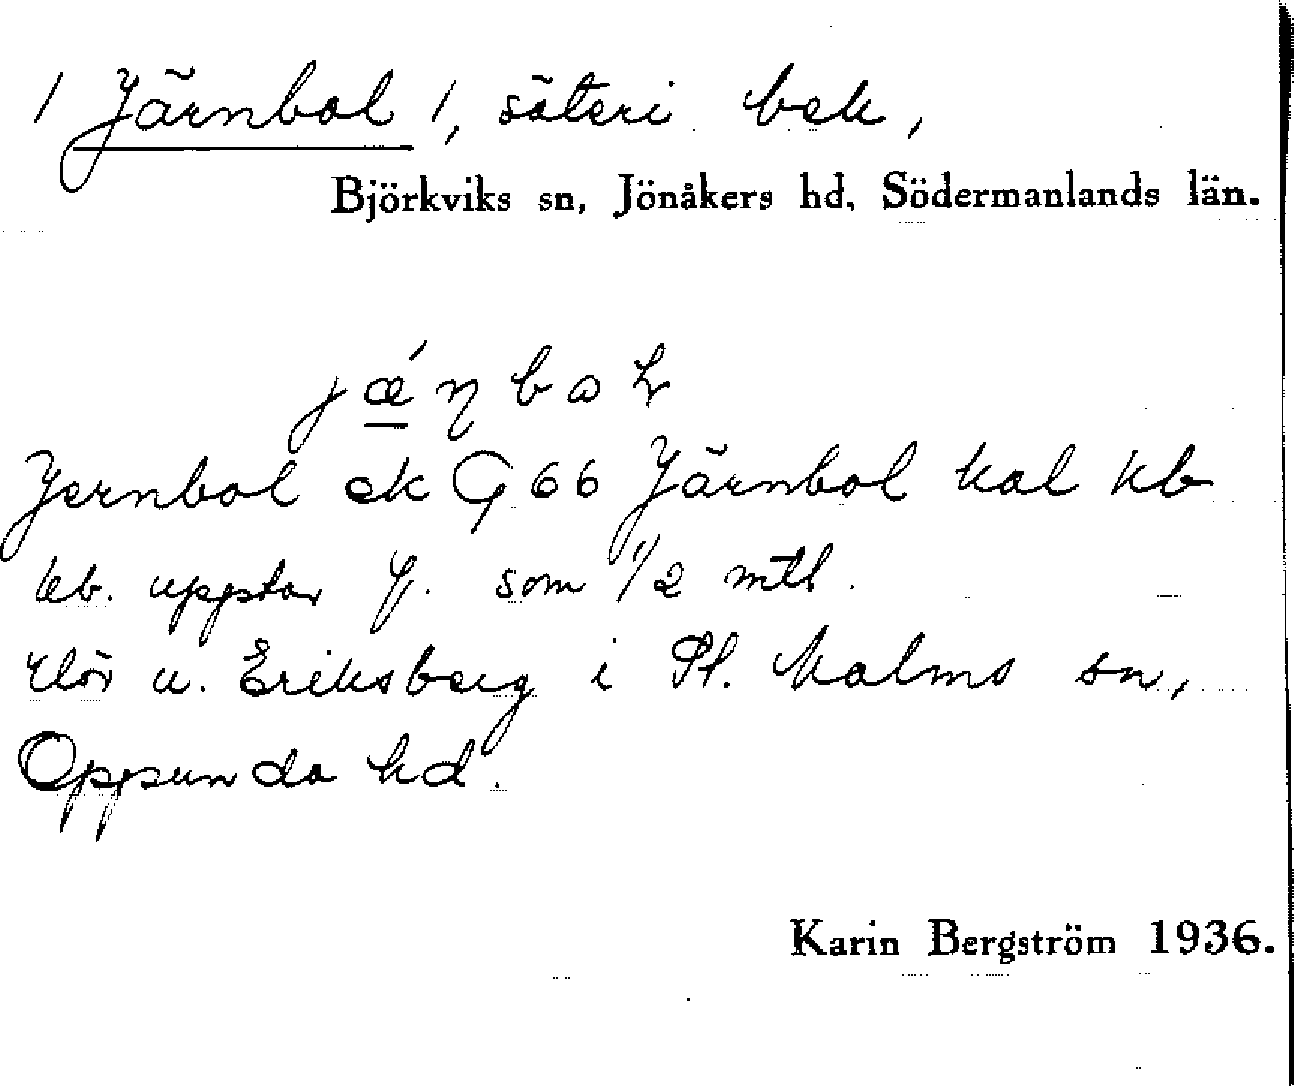 / Järnbol /, säteri bek,
Björkviks sn, Jönåkers hd, Södermanlands län.
jǽɳboɫ
Jernbol ek G 66 Järnbol kal kb
kb. upptar J. som 1/2 mtl.
Hör u. Eriksberg i St. Malms sn,
Oppunda hd.
Karin Bergström 1936.